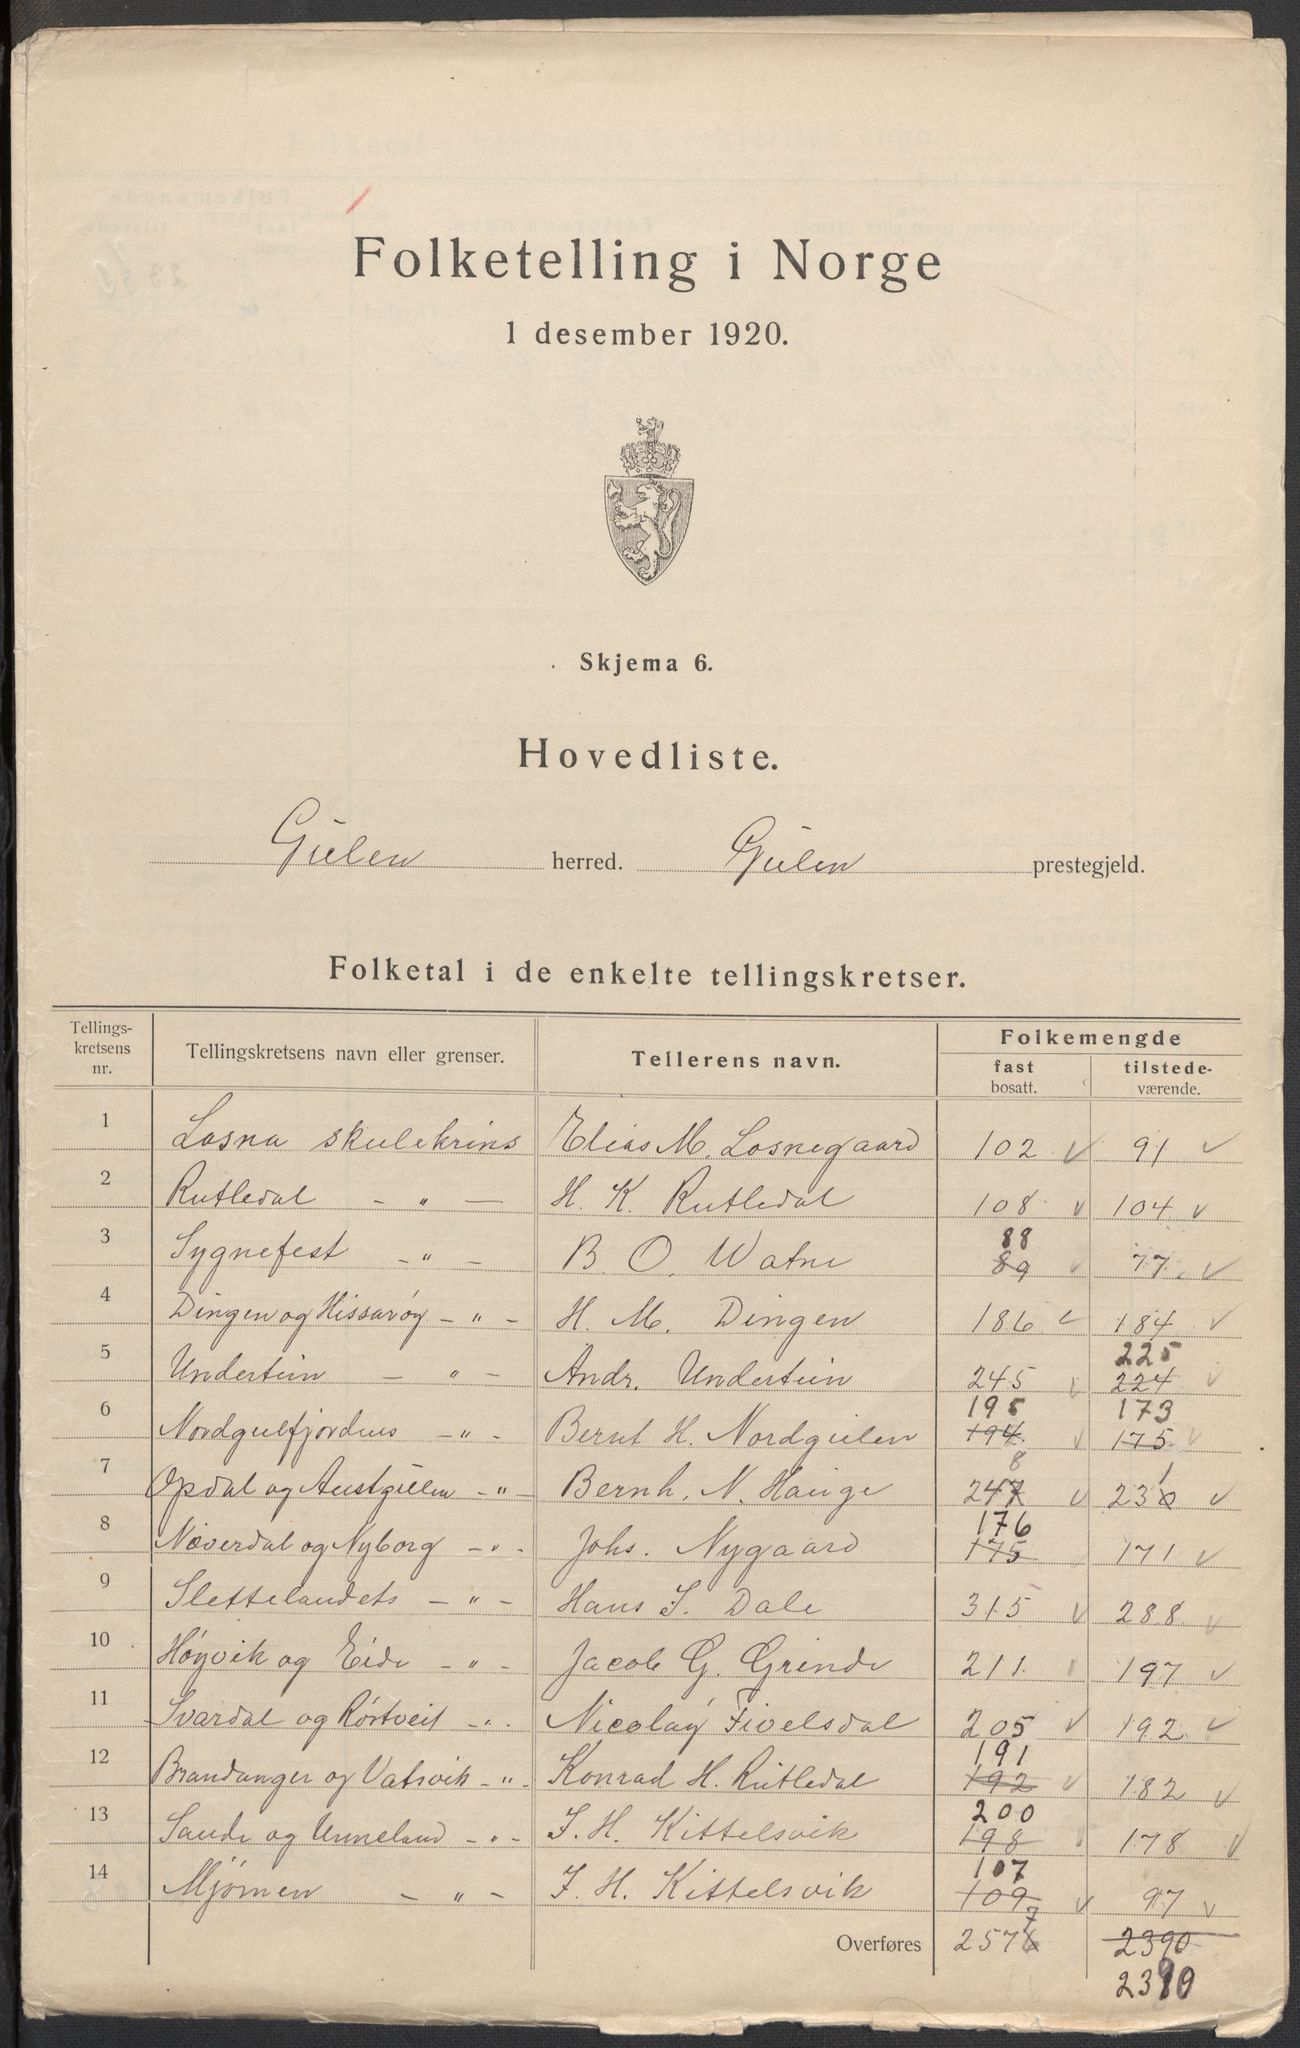 Folketelling i Norge
1 desember 1920.
Skjema 6.
Hovedliste.
Gulen herred. Gulen prestegjeld.
Folketal i de enkelte tellingskretser.
Tellings-kretsens nr. Tellingskretsens navn eller grenser. Tellerens navn. Folkemengde fast bosatt. tilstede-værende.
1 Losna skulekrins Elias M. Losnegaard 102 91
2 Rutledal – " – H. K. Rutledal 108 104
3 Sygnefest – " – B. O. Watne 88 89 77
4 Dingen og Hissarøy – " – H. M. Dingen 186 184
5 Undertun – " – Andr. Undertun 245 225 224
6 Nordgulfjordens – " – Bernt H. Nordgulen 195 194 173 175
7 Opdal og Austgulen – " – Bernh. N. Hauge 247 8 230 1
8 Næverdal og Nyborg – " – Johs. Nygaard 176 175 171
9 Slettelandets – " – Hans J. Dale 315 288
10 Høyvik og Eide – " – Jacob G. Grinde 211 197
11 Svardal og Røstveit – " – Nicolay Fivelsdal 205 192
12 Brandanger og Vatsvik – " – Konrad H. Rutledal 191 192 182
13 Sande og Unneland – " – J. H. Kittelsvik 200 198 178
14 Mjømen – " – J. H. Kittelsvik 107 109 97
Overføres 2576 7 2390
2390